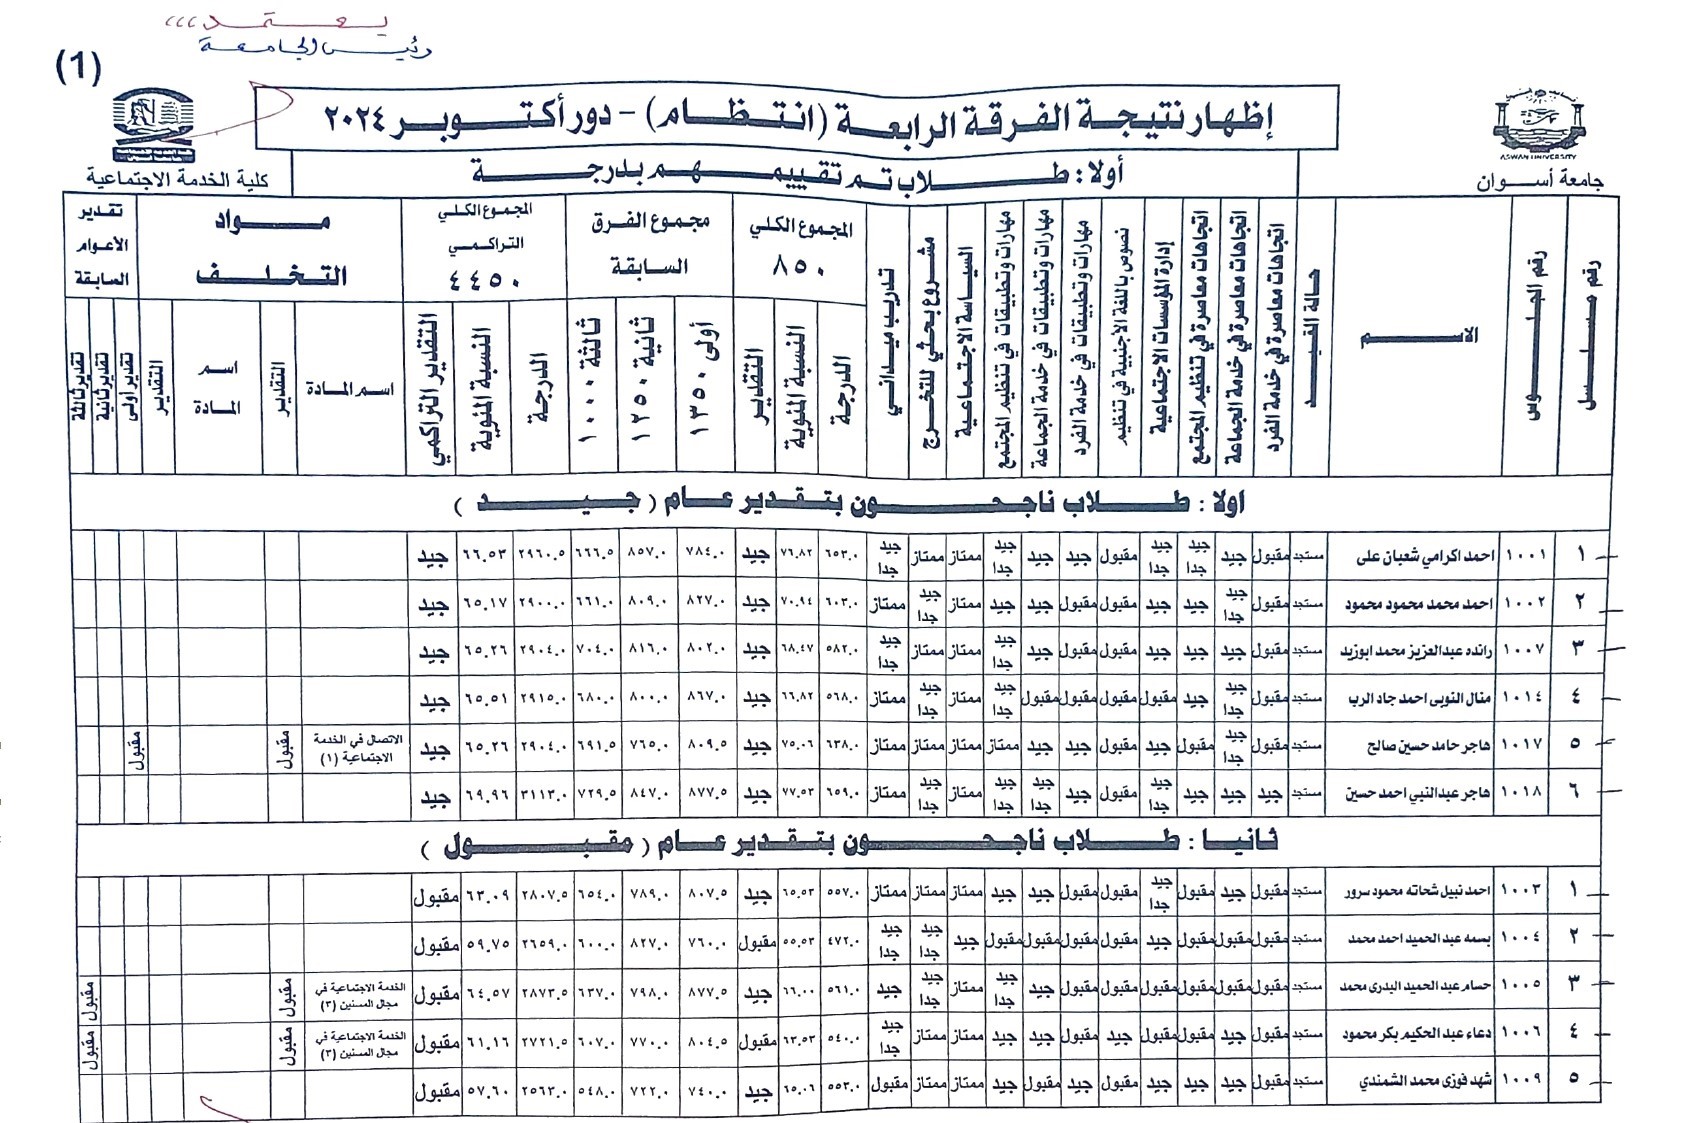 يعتمد،،،
رئيس الجامعة
(1)
إظهار نتيجة الفرقة الرابعة (انتظام) - دور أكتوبر ٢٠٢٤
أولا: طلاب تم تقييمهم بدرجة
كلية الخدمة الاجتماعية
ASWAN UNIVERSITY
جامعة أسوان
رقم مسلسل
رقم الجلوس
الاسم
حالة القيد
اتجاهات معاصرة في خدمة الفرد
اتجاهات معاصرة في خدمة الجماعة
اتجاهات معاصرة في تنظيم المجتمع
إدارة المؤسسات الاجتماعية
نصوص باللغة الأجنبية في تنظيم
مهارات وتطبيقات في خدمة الفرد
مهارات وتطبيقات في خدمة الجماعة
مهارات وتطبيقات في تنظيم المجتمع
السياسة الاجتماعية
مشروع بحثي للتخرج
تدريب ميداني
المجموع الكلي ٨٥٠
الدرجة
النسبة المئوية
التقدير
مجموع الفرق السابقة
أولى ١٣٥٠
ثانية ١٢٥٠
ثالثة ١٠٠٠
المجموع الكلي التراكمي ٤٤٥٠
الدرجة
النسبة المئوية
التقدير التراكمي
مواد التخلف
اسم المادة
التقدير
اسم المادة
التقدير
تقدير الأعوام السابقة
تقدير أولى
تقدير ثانية
تقدير ثالثة
اولا : طلاب ناجحون بتقدير عام ( جيد )
١ ١٠٠١ احمد اكرامي شعبان على مستجد مقبول جيد جيد جدا جيد جدا مقبول جيد جيد جيد جدا ممتاز ممتاز جيد جدا ٦٥٣.٠ ٧٦.٨٢ جيد ٧٨٤.٠ ٨٥٧.٠ ٦٦٦.٥ ٢٩٦٠.٥ ٦٦.٥٣ جيد
٢ ١٠٠٢ احمد محمد محمود محمود مستجد مقبول جيد جدا جيد جيد مقبول مقبول جيد جيد ممتاز جيد جدا ممتاز ٦٠٣.٠ ٧٠.٩٤ جيد ٨٢٧.٠ ٨٠٩.٠ ٦٦١.٠ ٢٩٠٠.٠ ٦٥.١٧ جيد
٣ ١٠٠٧ رانده عبدالعزيز محمد ابوزيد مستجد مقبول جيد جيد جيد مقبول مقبول جيد جيد جدا ممتاز ممتاز جيد جدا ٥٨٢.٠ ٦٨.٤٧ جيد ٨٠٢.٠ ٨١٦.٠ ٧٠٤.٠ ٢٩٠٤.٠ ٦٥.٢٦ جيد
٤ ١٠١٤ منال النوبى احمد جاد الرب مستجد مقبول جيد جدا جيد مقبول مقبول مقبول مقبول جيد جدا ممتاز جيد جدا ممتاز ٥٦٨.٠ ٦٦.٨٢ جيد ٨٦٧.٠ ٨٠٠.٠ ٦٨٠.٠ ٢٩١٥.٠ ٦٥.٥١ جيد
٥ ١٠١٧ هاجر حامد حسين صالح مستجد مقبول جيد جدا مقبول جيد مقبول جيد جيد ممتاز ممتاز ممتاز ممتاز ٦٣٨.٠ ٧٥.٠٦ جيد ٨٠٩.٥ ٧٦٥.٠ ٦٩١.٥ ٢٩٠٤.٠ ٦٥.٢٦ جيد الاتصال في الخدمة الاجتماعية (١) مقبول مقبول
٦ ١٠١٨ هاجر عبدالنبي احمد حسين مستجد جيد جيد جيد جيد جدا مقبول جيد جيد جدا جيد جدا ممتاز جيد جدا ممتاز ٦٥٩.٠ ٧٧.٥٣ جيد ٨٧٧.٥ ٨٤٧.٠ ٧٢٩.٥ ٣١١٣.٠ ٦٩.٩٦ جيد
ثانيا : طلاب ناجحون بتقدير عام ( مقبول )
١ ١٠٠٣ احمد نبيل شحاته محمود سرور مستجد مقبول جيد مقبول جيد جدا مقبول مقبول جيد جيد ممتاز ممتاز ممتاز ٥٥٧.٠ ٦٥.٥٣ جيد ٨٠٧.٥ ٧٨٩.٠ ٦٥٤.٠ ٢٨٠٧.٥ ٦٣.٠٩ مقبول
٢ ١٠٠٤ بسمه عبد الحميد احمد محمد مستجد مقبول مقبول مقبول جيد مقبول مقبول مقبول مقبول جيد جيد جدا جيد جدا ٤٧٢.٠ ٥٥.٥٣ مقبول ٧٦٠.٠ ٨٢٧.٠ ٦٠٠.٠ ٢٦٥٩.٠ ٥٩.٧٥ مقبول
٣ ١٠٠٥ حسام عبد الحميد البدرى محمد مستجد مقبول مقبول مقبول مقبول مقبول مقبول جيد جيد جدا ممتاز جيد جدا جيد ٥٦١.٠ ٦٦.٠٠ جيد ٨٧٧.٥ ٧٩٨.٠ ٦٣٧.٠ ٢٨٧٣.٥ ٦٤.٥٧ مقبول الخدمة الاجتماعية في مجال المسنين (٣) مقبول مقبول
٤ ١٠٠٦ دعاء عبد الحكيم بكر محمود مستجد مقبول جيد مقبول جيد جيد مقبول جيد جيد ممتاز ممتاز جيد جدا ٥٤٠.٠ ٦٣.٥٣ مقبول ٨٠٤.٥ ٧٧٠.٠ ٦٠٧.٠ ٢٧٢١.٥ ٦١.١٦ مقبول الخدمة الاجتماعية في مجال المسنين (٣) مقبول مقبول
٥ ١٠٠٩ شهد فوزى محمد الشمندي مستجد مقبول جيد جيد جيد مقبول جيد مقبول جيد ممتاز ممتاز مقبول ٥٥٣.٠ ٦٥.٠٦ جيد ٧٤٠.٠ ٧٢٢.٠ ٥٤٨.٠ ٢٥٦٣.٠ ٥٧.٦٠ مقبول